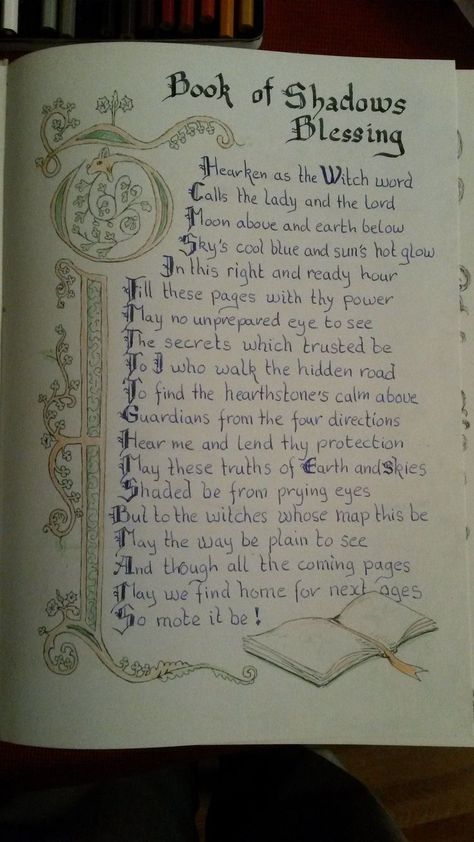 Book of Shadows
Blessing
Hearken as the Witch word
Calls the lady and the lord
Moon above and earth below
Sky's cool blue and sun's hot glow
In this right and ready hour
Fill these pages with thy power
May no unprepared eye to see
The secrets which trusted be
To I who walk the hidden road
To find the hearthstone's calm above
Guardians from the four directions
Hear me and lend thy protection
May these truths of Earth and Skies
Shaded be from prying eyes
But to the witches whose map this be
May the way be plain to see
And though all the coming pages
May we find home for next ages
So mote it be!